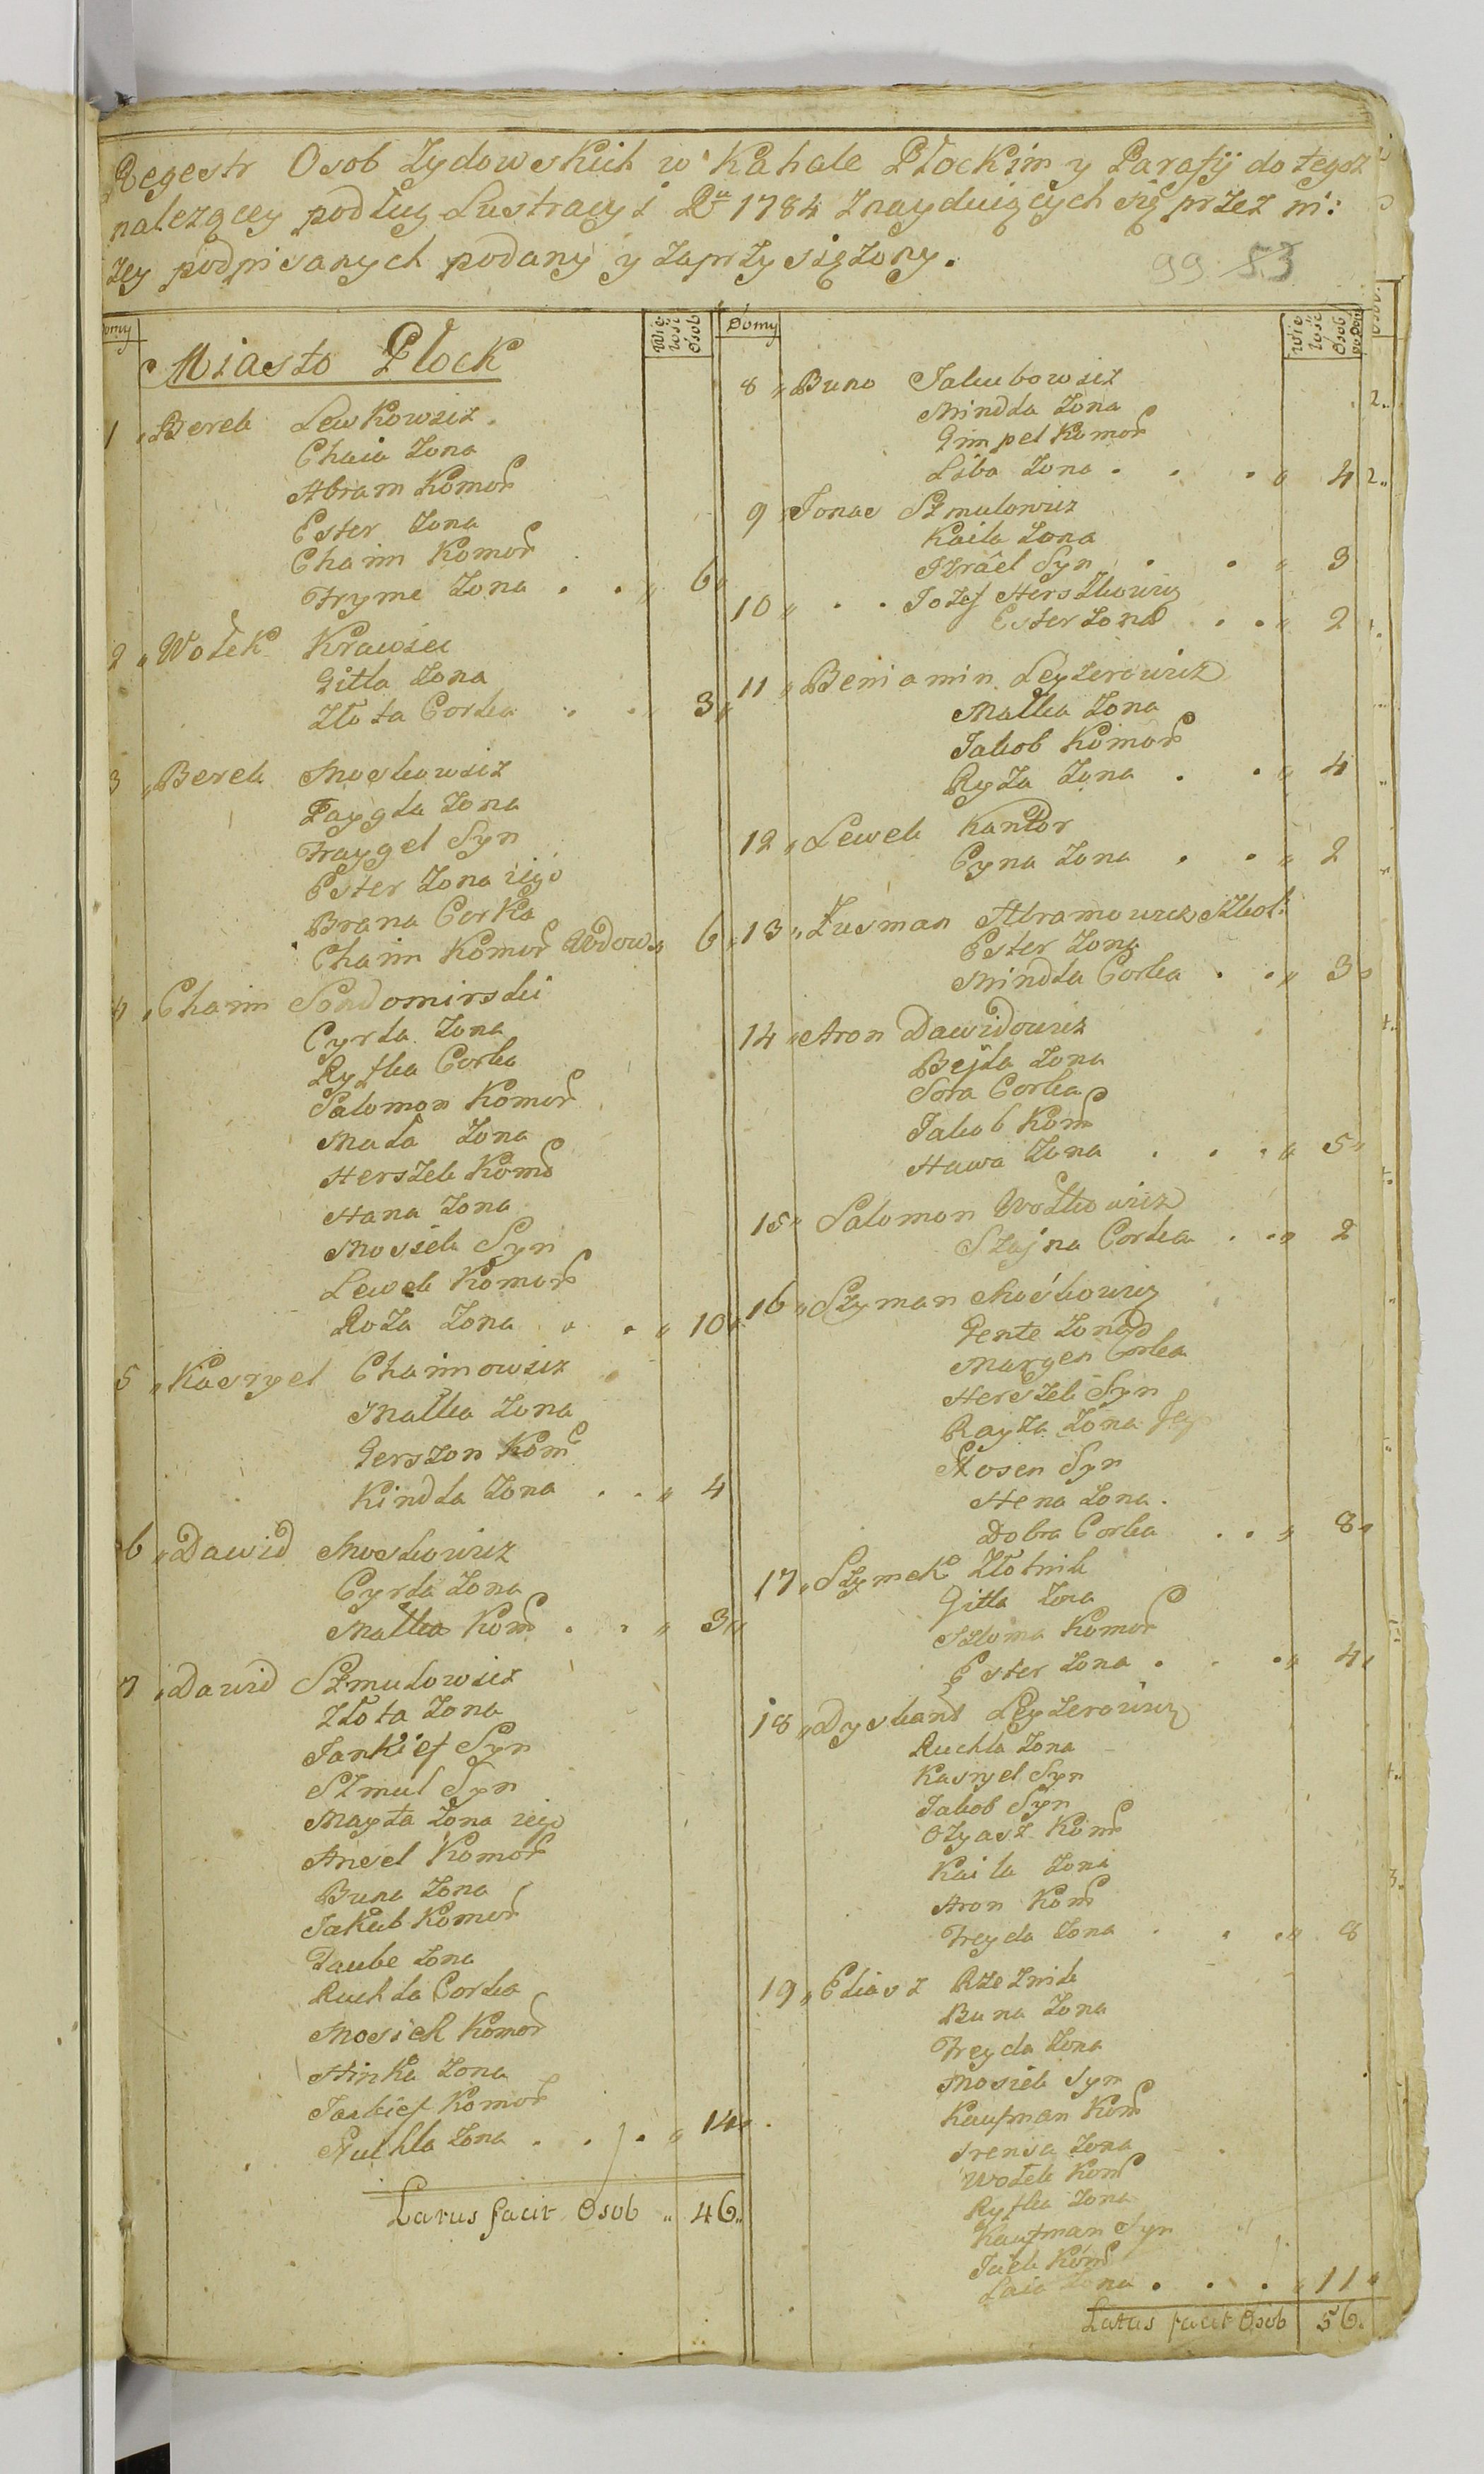 Regestr Osob Zydowskich w Kahale Płockim y Parafij do tegoż
nalezącey podług Lustracyi Ru 1784 Znayduiących się przez ni:
zey podpisanych podany y zaprzysiężony.
99 53
Domy
Wie
lość
Osob
Miasto Płock
1 „ Berek Lewkowicz
Chaia Zona
Abram Komor
Ester Zona
Chaim Komor
Fryme Zona . . „ 6 „
2 „ Wołek Krawiec
Gitla Zona
Złota Corka . . „ 3 „
3 „ Berek Moskowicz
Faygla Zona
Fraygel Syn
Ester Zona iego
Brana Corka
Chaim Komor Wdow „ 6 „
4 „ Chaim Sendomirski
Cyrla Zona
Ryfka Corka
Salomon Komor
Mala Zona
Herszek Komr
Hana Zona
Mosiek Syn
Lewek Komor
Roza Zona . . „ 10 „
5 „ Kasryel Chaimowicz
Malka Zona
Gerszon Kom
Kindla Zona . . „ 4
6 „ Dawid Moskowicz
Cyrla Zona
Malka Kom . . „ 3 „
7 „ Dawid Szmulowicz
Złota Zona
Jankief Syn
Szmul Syn
Mayta Zona iego
Ansel Komor
Buna Zona
Jakub Komor
Taube Zona
Ruchla Corka
Mosiek Komor
Hinka Zona
Jankief Komor
Ruchla Zona . . . „ 14 „
Latus facit Osob „ 46 „
Domy
Wie
lość
Osob
8 „ Buno Jakubowicz
Mindla Zona
Gimpel Komor
Liba Zona . . . „ 4
9 „ Jonas Szmulowicz
Kaila Zona
Izrael Syn . . „ 3
10 „ . . Jozef Herszkowicz
Ester Zona . . „ 2
11 „ Beniamin Leyzerowicz
Malka Zona
Jakob Komor
Ryza Zona . . „ 4
12 „ Lewek Kantor
Cyna Zona . . „ 2
13 „ Zusman Abramowicz Szkol:
Ester Zona
Mindla Corka . . „ 3 „
14 „ Aron Dawidowicz
Bejla Zona
Sora Corka
Jakob Kom
Hawa Zona . . . „ 5 „
15 „ Salomon Wolkowicz
Szajna Corka . . „ 2
16 „ Szyman Moskowicz
Gente Zona
Margen Corka
Herszek Syn
Rayza Zona jego
Rosen Syn
Hena Zona .
Dobra Corka . . „ 8 „
17 „ Szymek Złotnik
Gitla Zona
Szloma Komor
Ester Zona . . . „ 4 „
18 „ Dyskant Leyzerowicz
Ruchla Zona
Kasryel Syn
Jakob Syn
Ozyasz Kom
Kaila Zona
Aron Kom
Freyda Zona . . . „ 8
19 „ Eliasz Rzeznik
Buna Zona
Freyda Zona
Mosiek Syn
Kaufman Kom
Frensa Zona
Wołek Kom
Ryfka Zona
Kaufman Syn
Jcek Kom
Laia Zona . . . „ 11 „
Latus facit Osob 56.